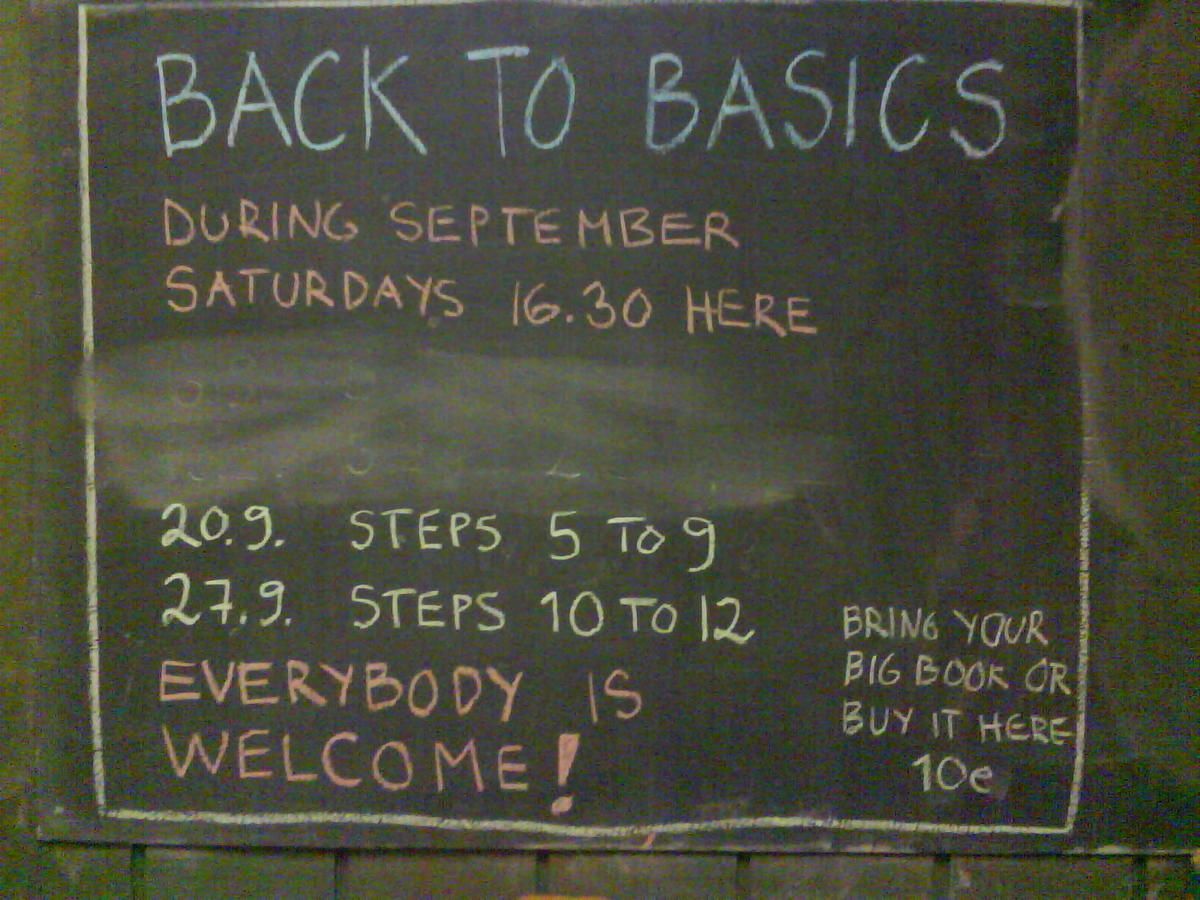 BACK TO BASICS
DURING SEPTEMBER
SATURDAYS 16.30 HERE
20.9. STEPS 5 TO 9
27.9. STEPS 10 TO 12
EVERYBODY IS
WELCOME!
BRING YOUR
BIG BOOK OR
BUY IT HERE
10e